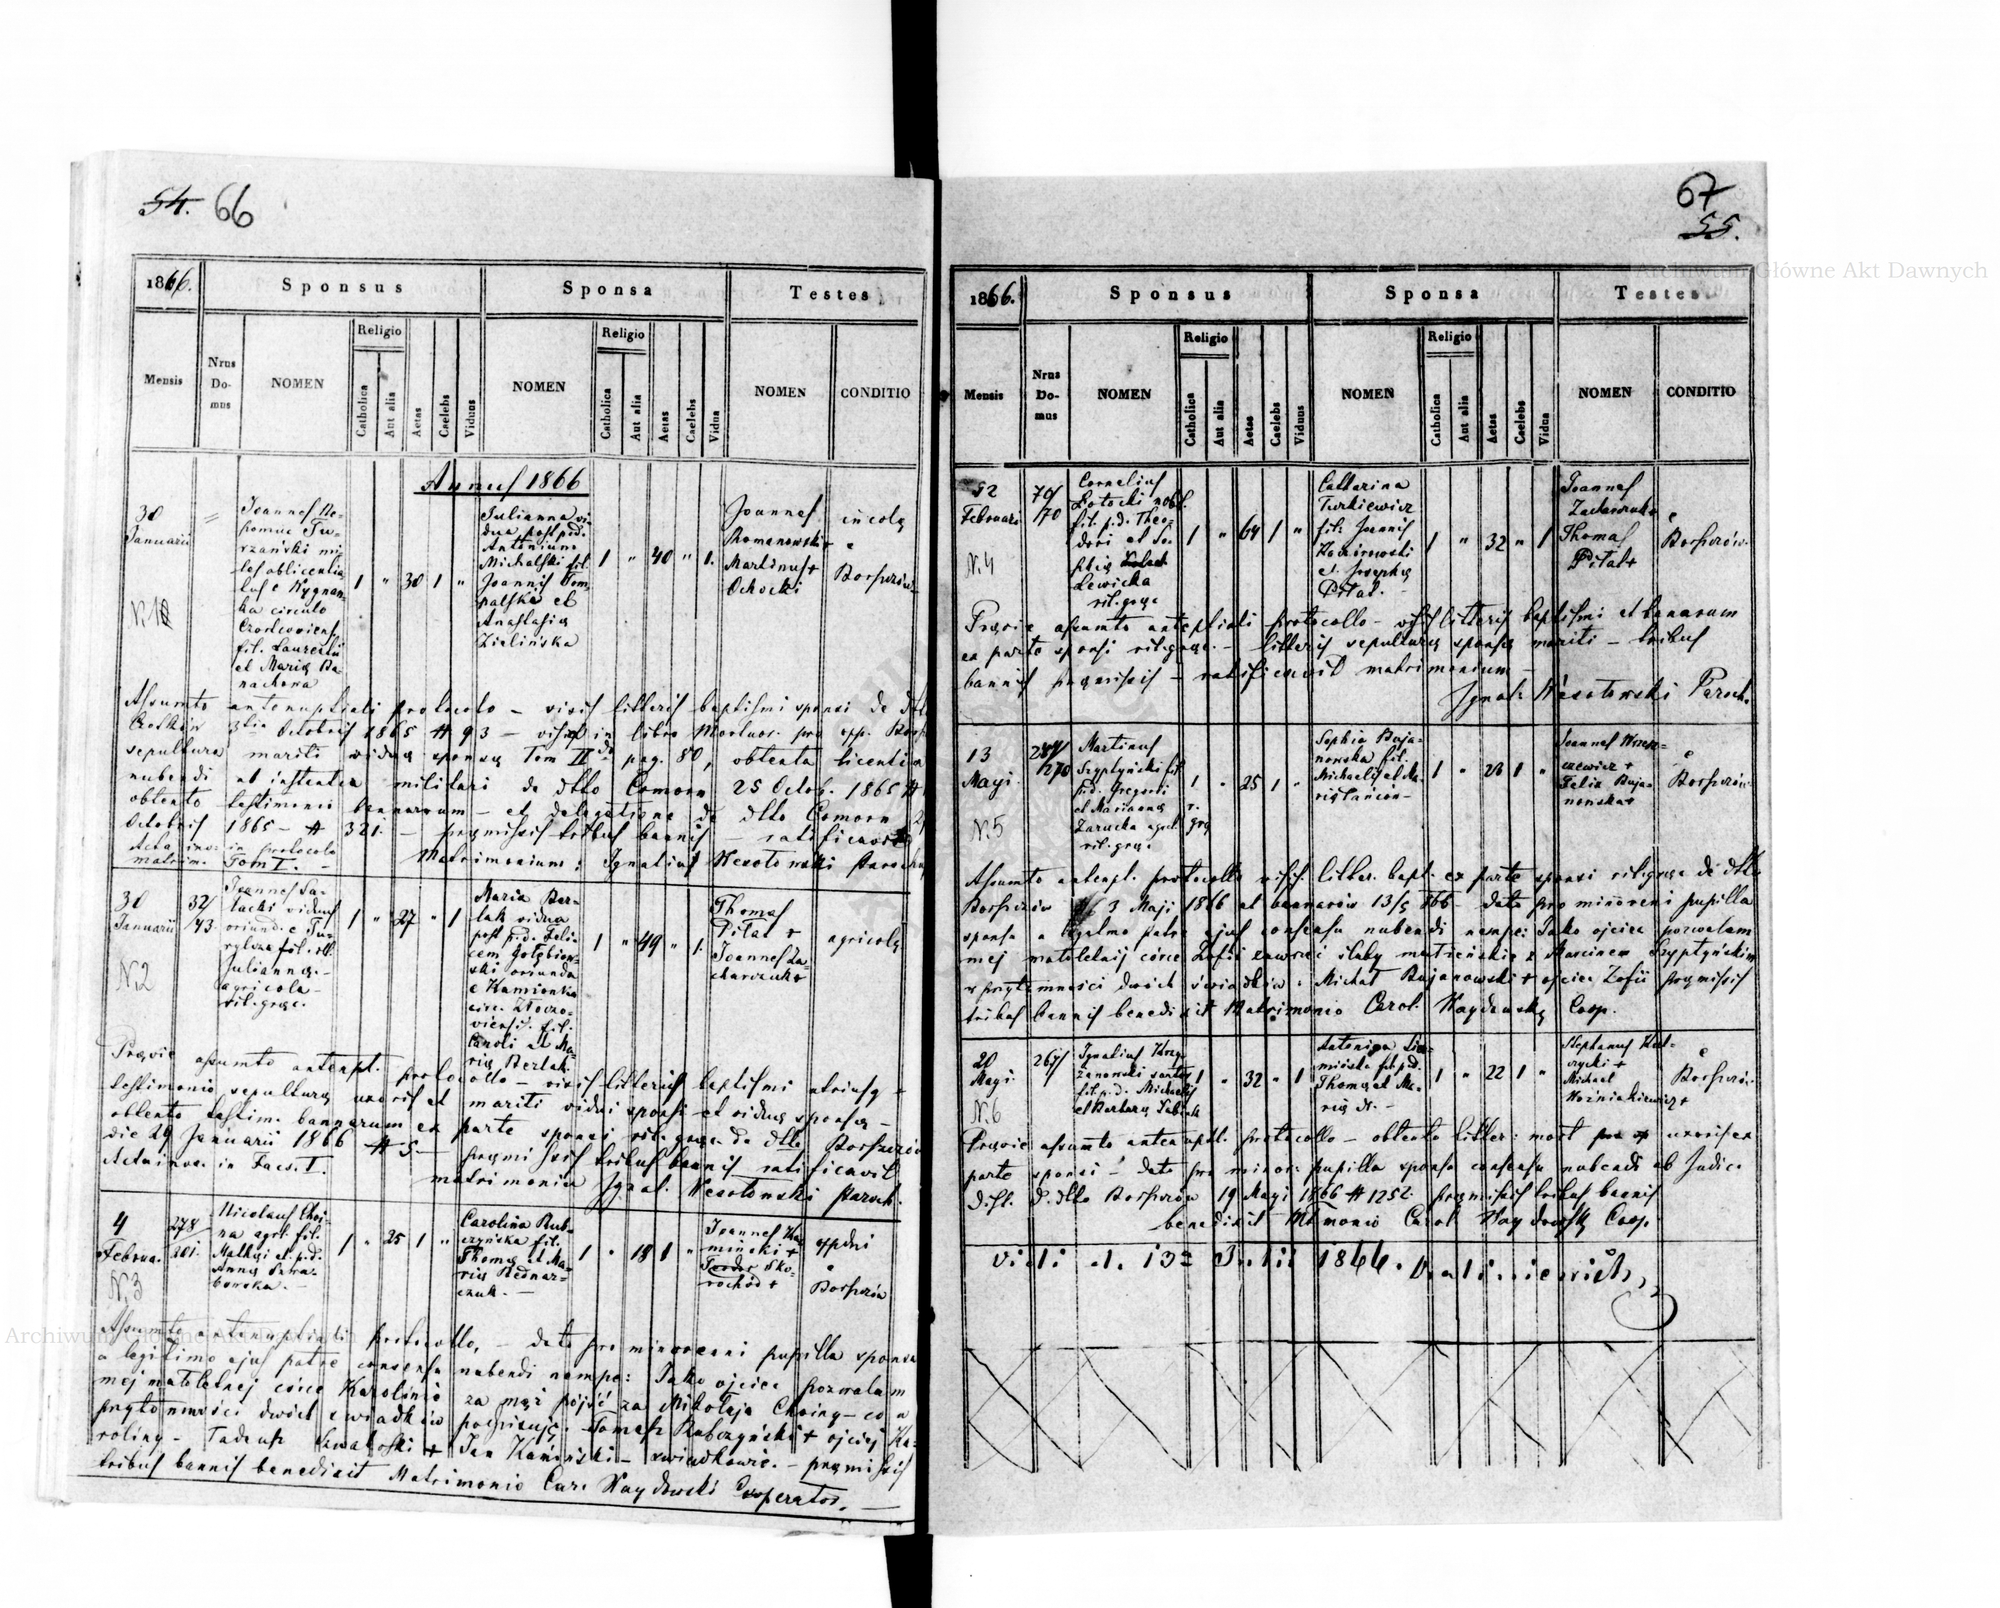 54. 66
1866.
Sponsus
Sponsa
Testes
Mensis
Nrus Do- mus
NOMEN
Religio
Catholica
Aut alia
Aetas
Caelebs
Viduus
NOMEN
Religio
Catholica
Aut alia
Aetas
Caelebs
Vidua
NOMEN
CONDITIO
Annus 1866
30
Januarii
N.1
Joannes Ne-
pomuc Tu-
rzański mi-
les
circulo
fil. Laurentii
et Mariae Ba-
nachowa
1 " 30 1 "
Julianna vi-
dua post p.d.
Antonium
Michalski fil.
Joannis Tom-
palski et
Anastasia
Zielińska
1 " 40 " 1.
Joannes
Romanowski +
Martinus +
Ochocki
incolae
e
Borszczów
Assumto antenuptiali protocolo – visis litteris baptismi sponsi de dtto
Octobris 1865 # 93 – in libro Mortuor. pro opp. Borsz
sepultura mariti viduae sponsae Tom II do pag. 80, obtenta licentia
nubendi ab instantia militari de dtto Comorn 25 Octob. 1865 #
obtento testimonio bannorum – et delegatione de dtto Comorn
Octobris 1865 – # 321. – praemissis tribus bannis – ratificavit
Acta in protocolo
matrim. Tom I. –
Matrimonium: Ignatius Wesołowski Parochus
30
Januarii
N.2
32/
43
Joannes Sa-
łacki viduus
oriund. e
fil.
Juliannae –
agricola –
rit. graec.
1 " 27 " 1
Maria Ber-
lak vidua
post p.d. Feli-
cem Gołębiow-
ski oriunda
e Kamionka
circ. Złoczo-
viensis fil.
Caroli et Ma-
riae Berlak
1 " 49 " 1.
Thomas
Pitat +
Joannes Za-
charczuk +
agricolae
Praevie assumto antenupt. protocollo – visis litteris baptismi utriusq +
testimonio sepulturae uxoris et mariti vidui sponsi et viduae sponsae –
obtento testim. bannorum ex parte sponsi rit. graec. de dtto Borszczów
die 29 Januarii 1866 # 5 – praemissis tribus bannis ratificavit
Acta in Fasc. I.
matrimonium Ignat. Wesołowski Paroch.
4
Februar.
N.3
278/
201.
Nicolaus Choi-
na agr. fil.
Mathei et p.d.
Annae
1 " 25 1 "
Carolina Rub-
czyńska fil.
Thomae et Ma-
riae Bednar-
czuk. –
1 " 18 1 "
Joannes Ka-
miński +
Teodor Sko-
rochód +
oppidni
e
Borszczów
Assumto antenuptiali protocollo, – dato pro minorenni pupilla sponsa
a legitimo ejus patre consensu nubendi nempe: Jako ojciec pozwalam
mej małoletnej córce Karolinie za mąż pójść za Mikołaja Choiny – co w
przytomności dwóch swiadków podpisuję. Tomasz Rubczyński + ojciec Ka-
roliny – Tadeusz + Jan Kamiński – swiadkowie. – praemissis
tribus bannis benedixit Matrimonio Car. Kaydowski Cooperator. –
67
55.
1866.
Sponsus
Sponsa
Testes
Mensis
Nrus Do- mus
NOMEN
Religio
Catholica
Aut alia
Aetas
Caelebs
Viduus
NOMEN
Religio
Catholica
Aut alia
Aetas
Caelebs
Vidua
NOMEN
CONDITIO
12
Februarii
N.4
70/
70
Cornelius
Łotocki nobil.
fil. p.d. Theo-
dori et So-
phiae
Lewicka
rit. graec.
1 " 64 1 "
Catharina
Turkiewicz
fil. Joannis
et Josephae
Pitat. –
1 " 32 " 1
Joannes
Zacharczuk
Thomas
Pitat +
e
Borszczów.
Praevie assumto antenptiali protocollo – visis litteris baptismi et banorum
ex parte sponsi rit. graec. – litteris sepulturae sponsae mariti – tribus
bannis praemissis – ratificavit matrimonium –
Ignat. Wesołowski Paroch.
13
Mayi
N.5
Martinus
Szyptyński fil.
p.d. Gregorii
et Mariannae
Zarucka agric.
rit. graec.
1 " 25 1 "
r.
graec
Sophia Buja-
nowska fil.
Michaelis et Ma-
riae
1 " 23 1 "
Joannes
+
Felix Buja-
nowska +
e
Borszczów
Assumto antenpt. protocollo visis litter. bapt. ex parte sponsi rit. graec. de dtto
Borszczów 3 Maji 1866 et bannorum 13/5 866 – dato pro minoreni pupilla
sponsa a legitimo patre ejus consensu nubendi nempe: Jako ojciec pozwalam
mej małoletniej córce Zofii zawrzeć śluby małżeńskie z Marcinem Szyptyńskim
w przytomności dwóch świadków: Michał Bujanowski + ojciec Zofii praemissis
tribus bannis benedixit Matrimonio Carol. Kaydowsky Coop.
20
Mayi
N.6
267/
Ignatius Krzy-
żanowski sartor
fil. p.d. Michaelis
et Barbara
1 " 32 " 1
Antonina
fil. p.d.
Thomae et Ma-
riae
1 " 22 1 "
Stephanus
+
Michael
Woźniakiewicz +
e
Borszczów
Praevie assumto antenuptl. protocollo – obtento litter: mort uxoris ex
parte sponsi – dato pro minor. pupilla sponsa consensu nubendi ab Judic.
Dist. d. dtto Borszczów 19 Mayi 1866 # 1252. praemissis tribus bannis
benedixit Mtmonio Carol Kaydowsky Coop.
Vidi d. 13 Julii 1866.
Archiwum Główne Akt Dawnych
Archiwum Główne Akt Dawnych